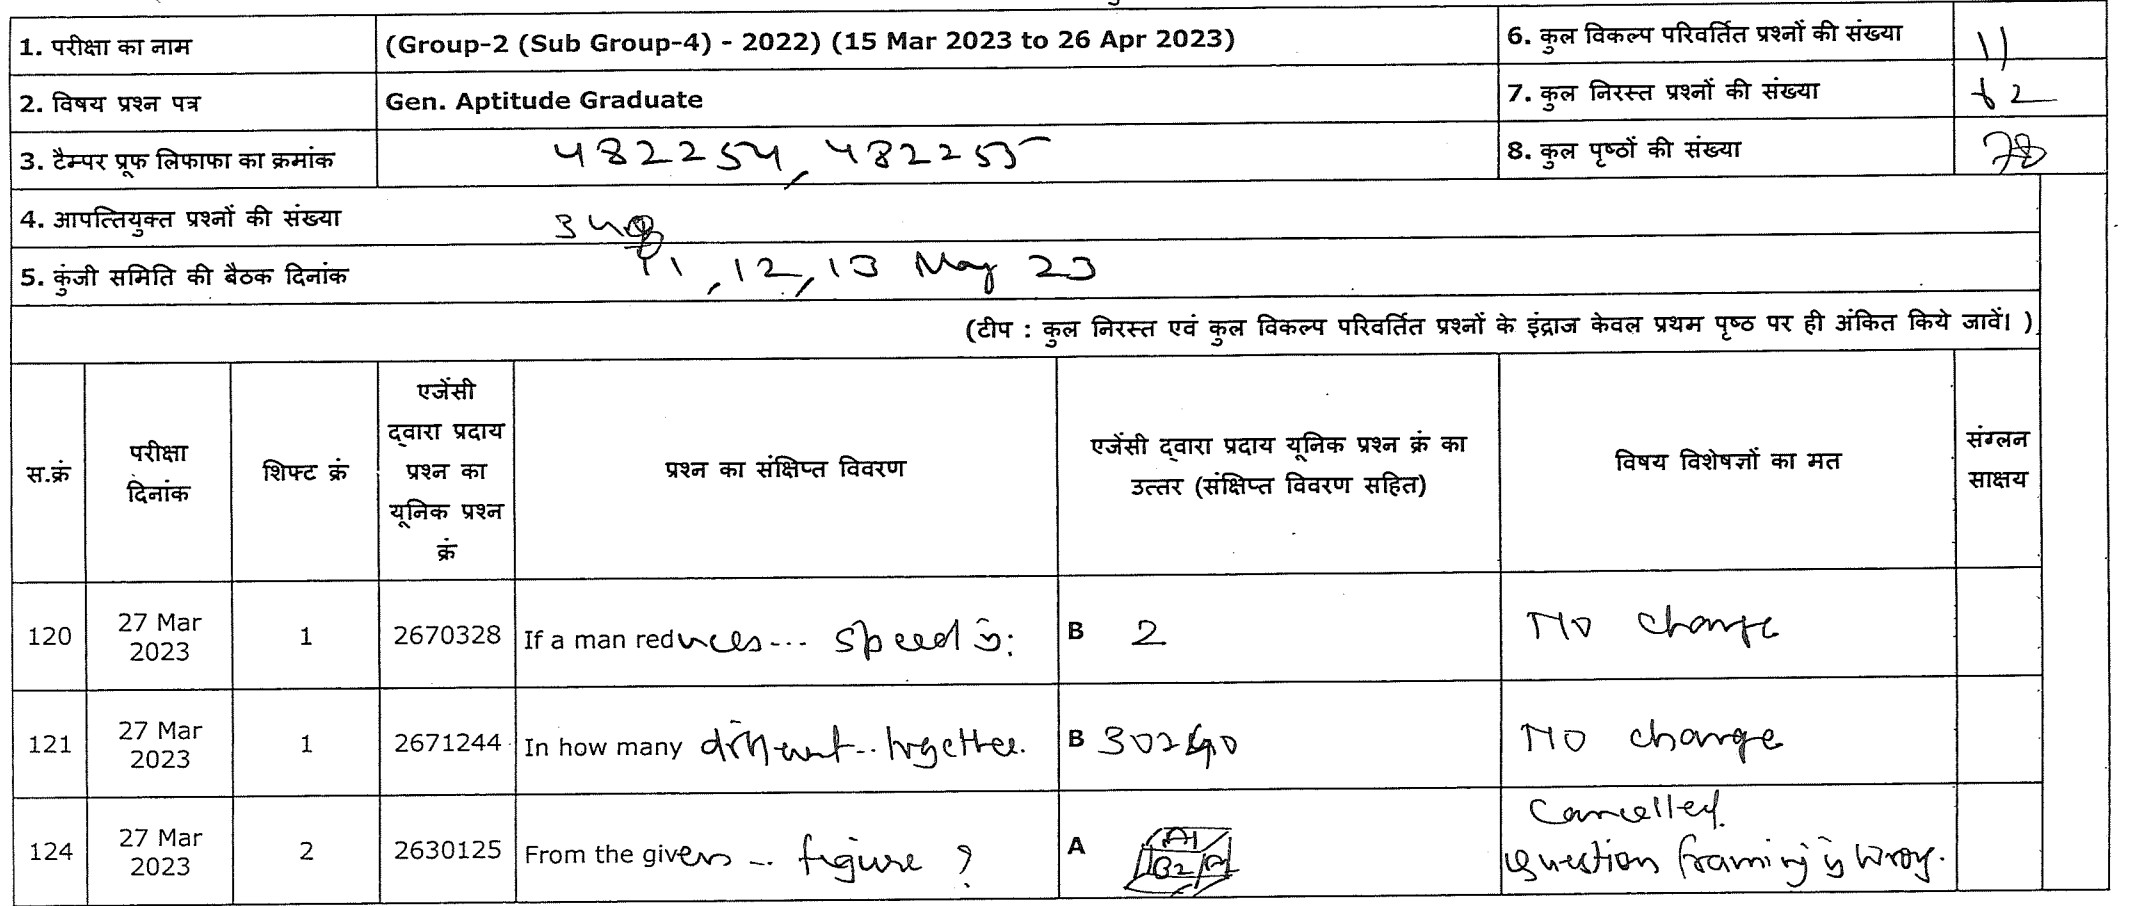 1. परीक्षा का नाम (Group-2 (Sub Group-4) - 2022) (15 Mar 2023 to 26 Apr 2023) 6. कुल विकल्प परिवर्तित प्रश्नों की संख्या 11
2. विषय प्रश्न पत्र Gen. Aptitude Graduate 7. कुल निरस्त प्रश्नों की संख्या 62
3. टैम्पर प्रूफ लिफाफा का क्रमांक 482254, 482255 8. कुल पृष्ठों की संख्या 78
4. आपत्तियुक्त प्रश्नों की संख्या
5. कुंजी समिति की बैठक दिनांक 11, 12, 13 May 23
(टीप : कुल निरस्त एवं कुल विकल्प परिवर्तित प्रश्नों के इंद्राज केवल प्रथम पृष्ठ पर ही अंकित किये जावें। )
स.क्रं
परीक्षा
दिनांक
शिफ्ट क्रं
एजेंसी
द्वारा प्रदाय
प्रश्न का
यूनिक प्रश्न
क्रं
प्रश्न का संक्षिप्त विवरण
एजेंसी द्वारा प्रदाय यूनिक प्रश्न क्रं का
उत्तर (संक्षिप्त विवरण सहित)
विषय विशेषज्ञों का मत
संग्लन
साक्षय
120 27 Mar 2023 1 2670328 If a man reduces... speed is: B 2 No change
121 27 Mar 2023 1 2671244 In how many different... together. B 30240 No change
124 27 Mar 2023 2 2630125 From the given ... figure ? A A1 B2 Cancelled.
question framing is wrong.